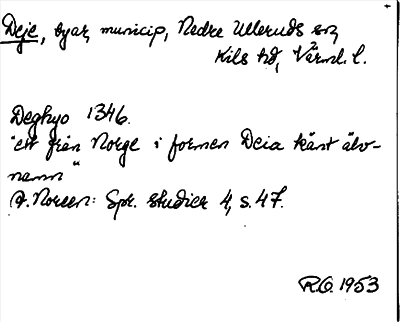 Deje, byar, municip, Nedre Ulleruds sn,
Kils hd, Värml. l.
Deghyo 1346.
"ett från Norge i formen Deia känt älv-
namn"
A. Noreen: Spr. studier 4, s. 47.
R.O. 1953